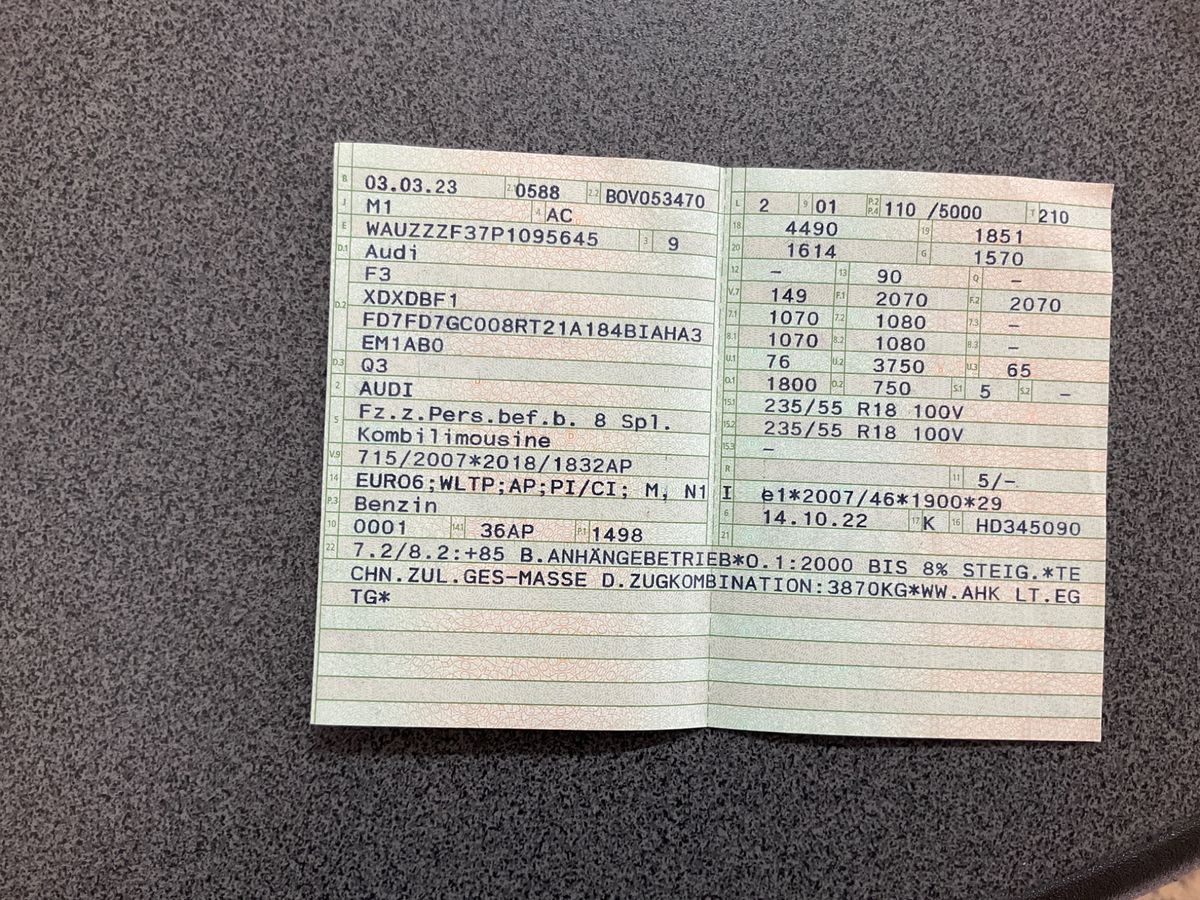 B 03.03.23 2.1 0588 2.2 BOV053470
J M1 4 AC
E WAUZZZF37P1095645 3 9
D.1 Audi
F3
D.2 XDXDBF1
FD7FD7GC008RT21A184BIAHA3
EM1AB0
D.3 Q3
2 AUDI
5 Fz.z.Pers.bef.b. 8 Spl.
Kombilimousine
V.9 715/2007*2018/1832AP
14 EURO6;WLTP;AP;PI/CI; M, N1 I
P.3 Benzin
10 0001 14.1 36AP P.1 1498
L 2 9 01 P.2 P.4 110 /5000 T 210
18 4490 19 1851
20 1614 G 1570
12 – 13 90 Q –
V.7 149 F.1 2070 F.2 2070
7.1 1070 7.2 1080 7.3 –
8.1 1070 8.2 1080 8.3 –
U.1 76 U.2 3750 U.3 65
O.1 1800 O.2 750 S.1 5 S.2 –
15.1 235/55 R18 100V
15.2 235/55 R18 100V
15.3 –
R 11 5/–
K e1*2007/46*1900*29
6 14.10.22 17 K 16 HD345090
21
22 7.2/8.2:+85 B.ANHÄNGEBETRIEB*O.1:2000 BIS 8% STEIG.*TE
CHN.ZUL.GES-MASSE D.ZUGKOMBINATION:3870KG*WW.AHK LT.EG
TG*